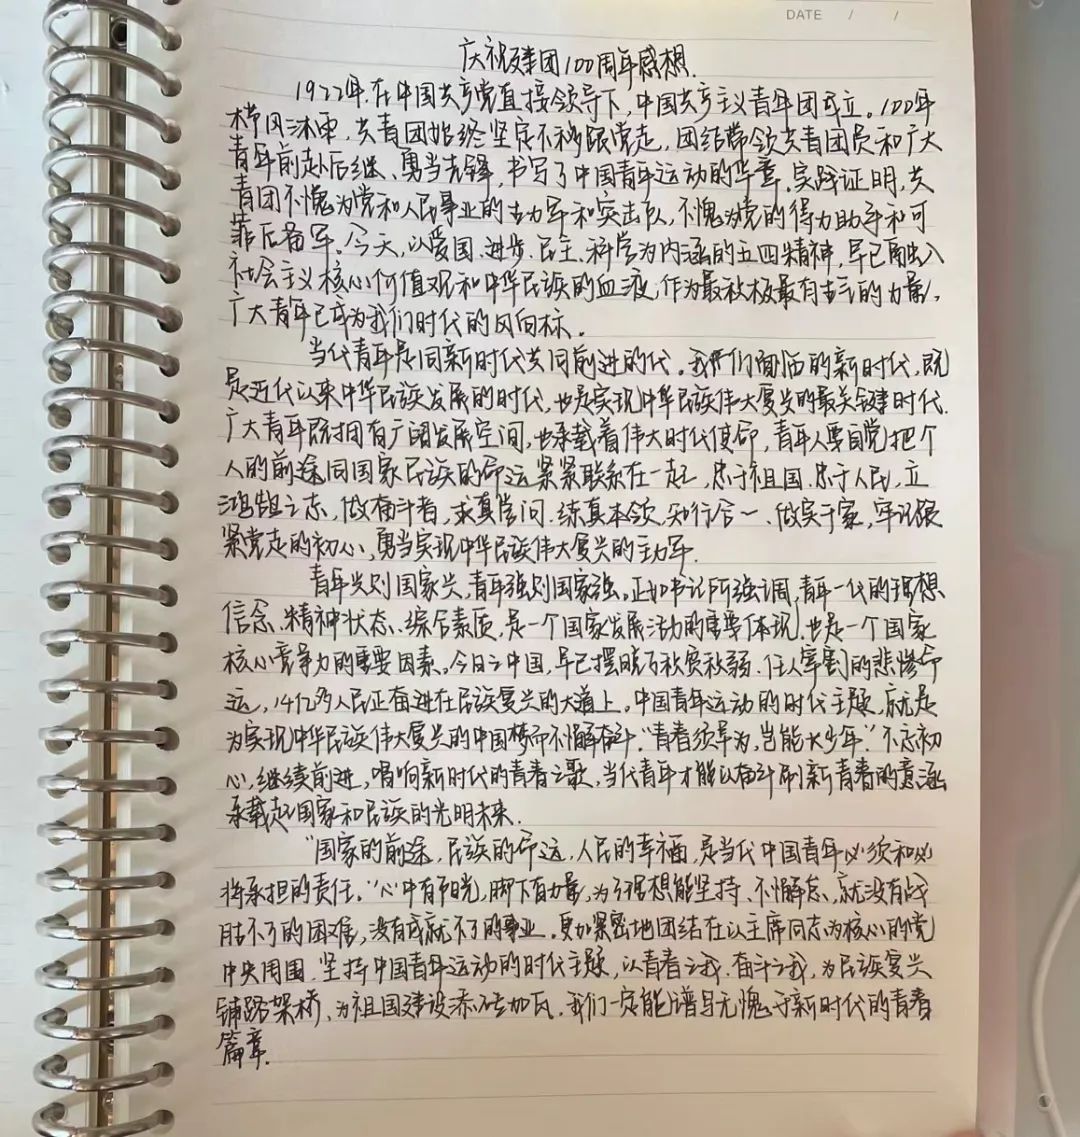 DATE / /
庆祝建团100周年感想.
1922年,在中国共产党直接领导下,中国共产主义青年团成立。100年
栉风沐雨,共青团始终坚定不移跟党走,团结带领共青团员和广大
青年前赴后继、勇当先锋,书写了中国青年运动的华章.实践证明,共
青团不愧为党和人民事业的主力军和突击队,不愧为党的得力助手和可
靠后备军。今天,以爱国.进步.民主.科学为内涵的五四精神,早已融入
社会主义核心价值观和中华民族的血液,作为最积极最有生气的力量,
广大青年已成为我们时代的风向标.
当代青年是同新时代共同前进的代。我们们面临的新时代,既
是近代以来中华民族发展的时代,也是实现中华民族伟大复兴的最关键时代.
广大青年既拥有广阔发展空间,也承载着伟大时代使命,青年人要自觉把个
人的前途同国家民族的命运紧紧联系在一起,忠于祖国.忠于人民,立
鸿鹄之志,做奋斗者,求真学问.练真本领,知行合一、做实干家,牢记跟
紧党走的初心,勇当实现中华民族伟大复兴的主力军.
青年兴则国家兴,青年强则国家强。正如书记所强调,青年一代的理想
信念、精神状态、综合素质,是一个国家发展活力的重要体现,也是一个国家
核心竞争力的重要因素。今日之中国,早已摆脱了积贫积弱.任人宰割的悲惨命
运,14亿多人民正奋进在民族复兴的大道上。中国青年运动的时代主题,就是
为实现中华民族伟大复兴的中国梦而不懈奋斗.“青春须早为,岂能长少年.”不忘初
心,继续前进,唱响新时代的青春之歌,当代青年才能以奋斗刷新青春的意涵
承载起国家和民族的光明未来.
“国家的前途,民族的命运,人民的幸福,是当代中国青年必须和必
将承担的责任。”心中有阳光,脚下有力量,为了理想能坚持、不懈怠,就没有战
胜不了的困难,没有成就不了的事业。更加紧密地团结在以主席同志为核心的党
中央周围.坚持中国青年运动的时代主题,以青春之我.奋斗之我,为民族复兴
铺路架桥,为祖国建设添砖加瓦,我们一定能谱写无愧于新时代的青春
篇章.